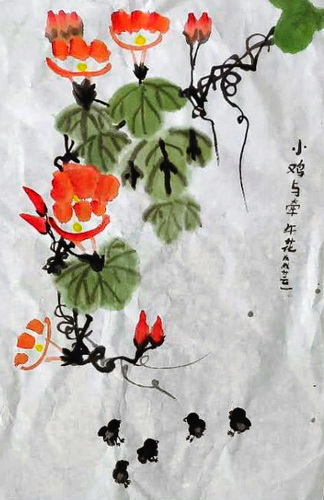 小鸡与牵牛花